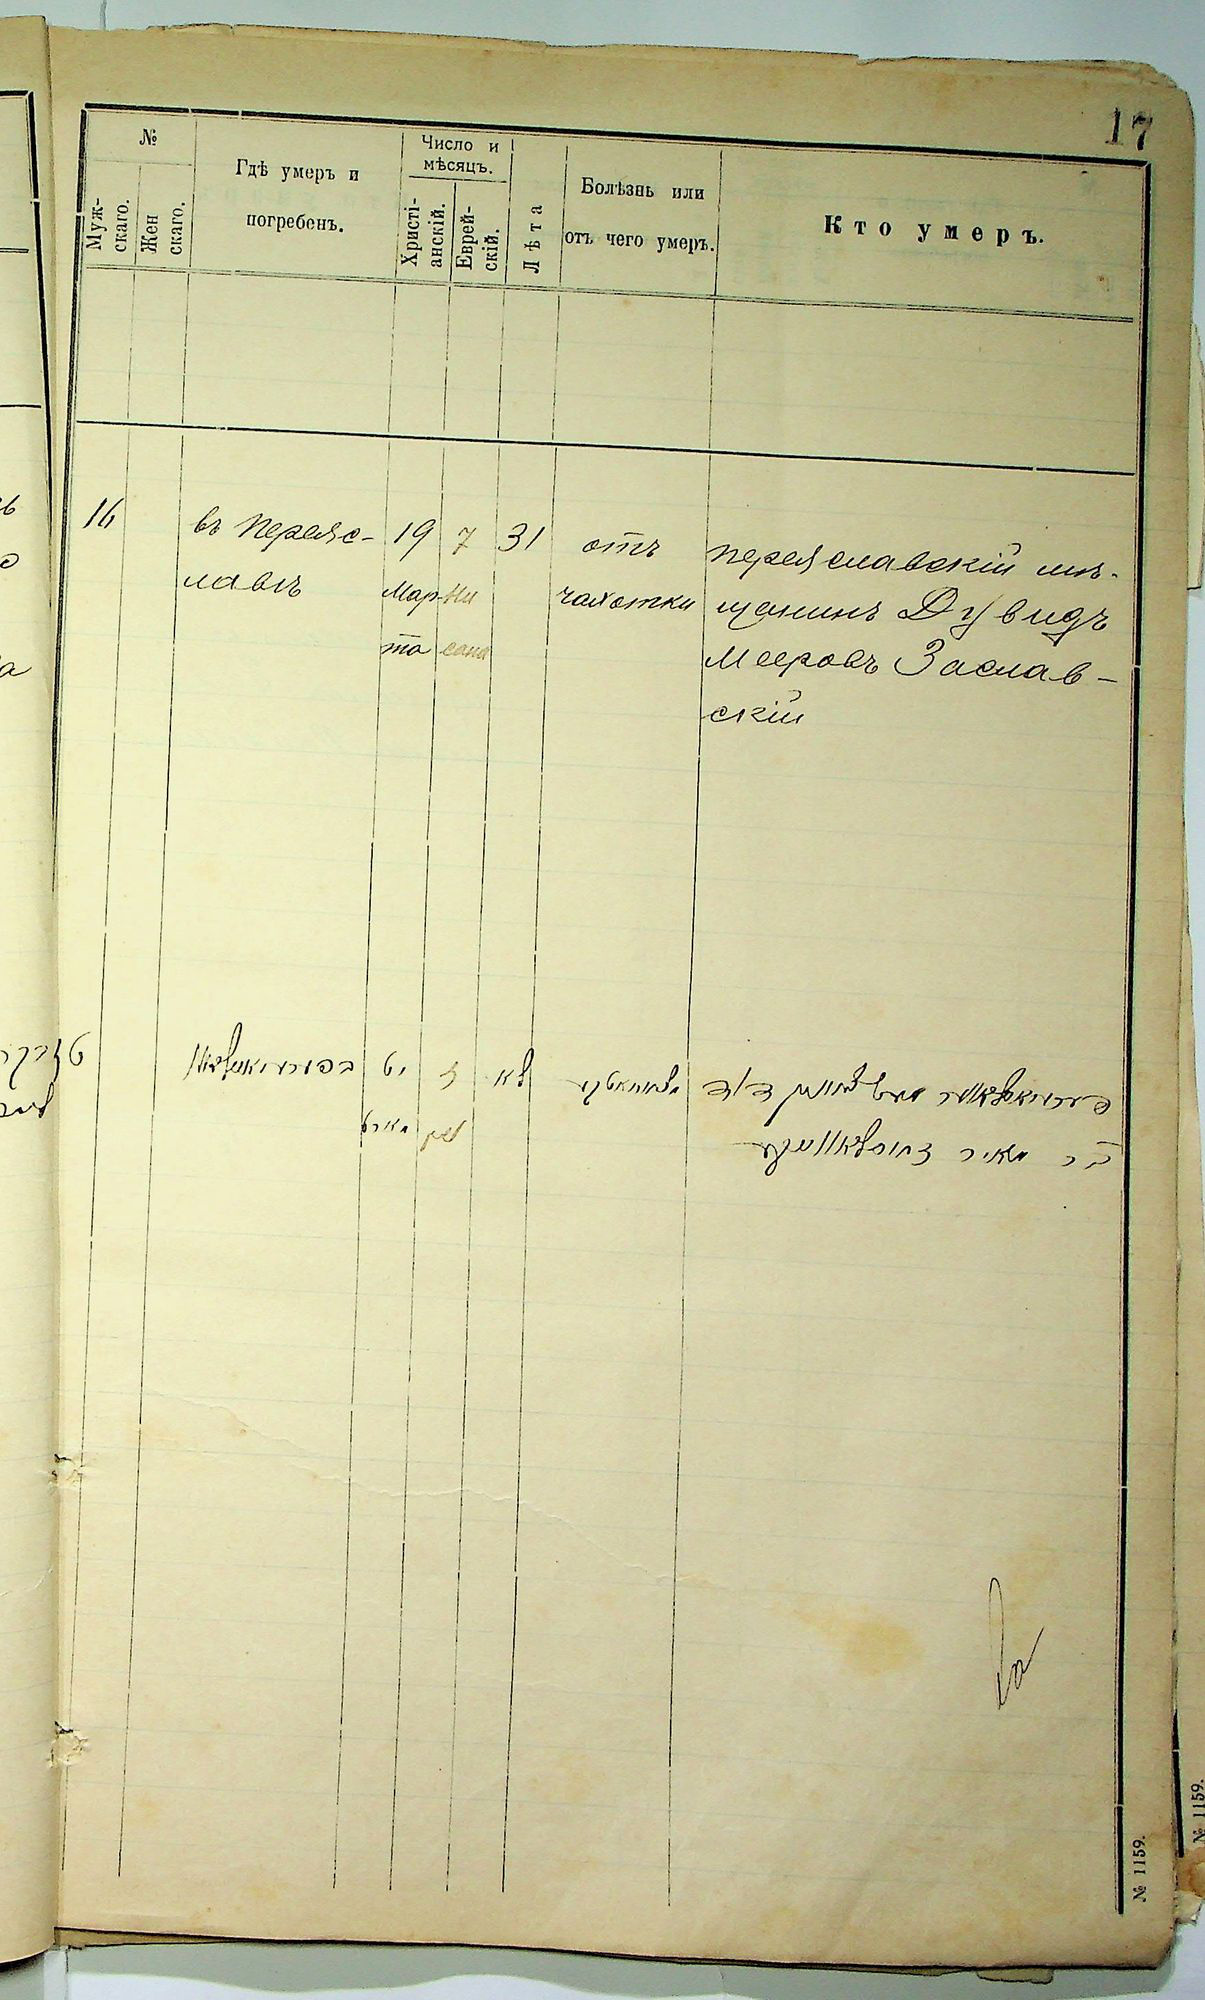 17
№
Муж-
скаго.
Жен
скаго.
Гдѣ умеръ и
погребенъ.
Число и
мѣсяцъ.
Христі-
анскій.
Еврей-
скій.
Лѣта
Болѣзнь или
отъ чего умеръ.
Кто умеръ.
16
въ Переяс-
лавлѣ
19
Мар-
та
7
Ни
сана
31
отъ
чахотки
Переяславскій мѣ-
щанинъ Дувидъ
Мееровъ Заслав-
скій
יט
מארט
ז
ניסן
לא
בר מאיר
№ 1159.
№ 1159.